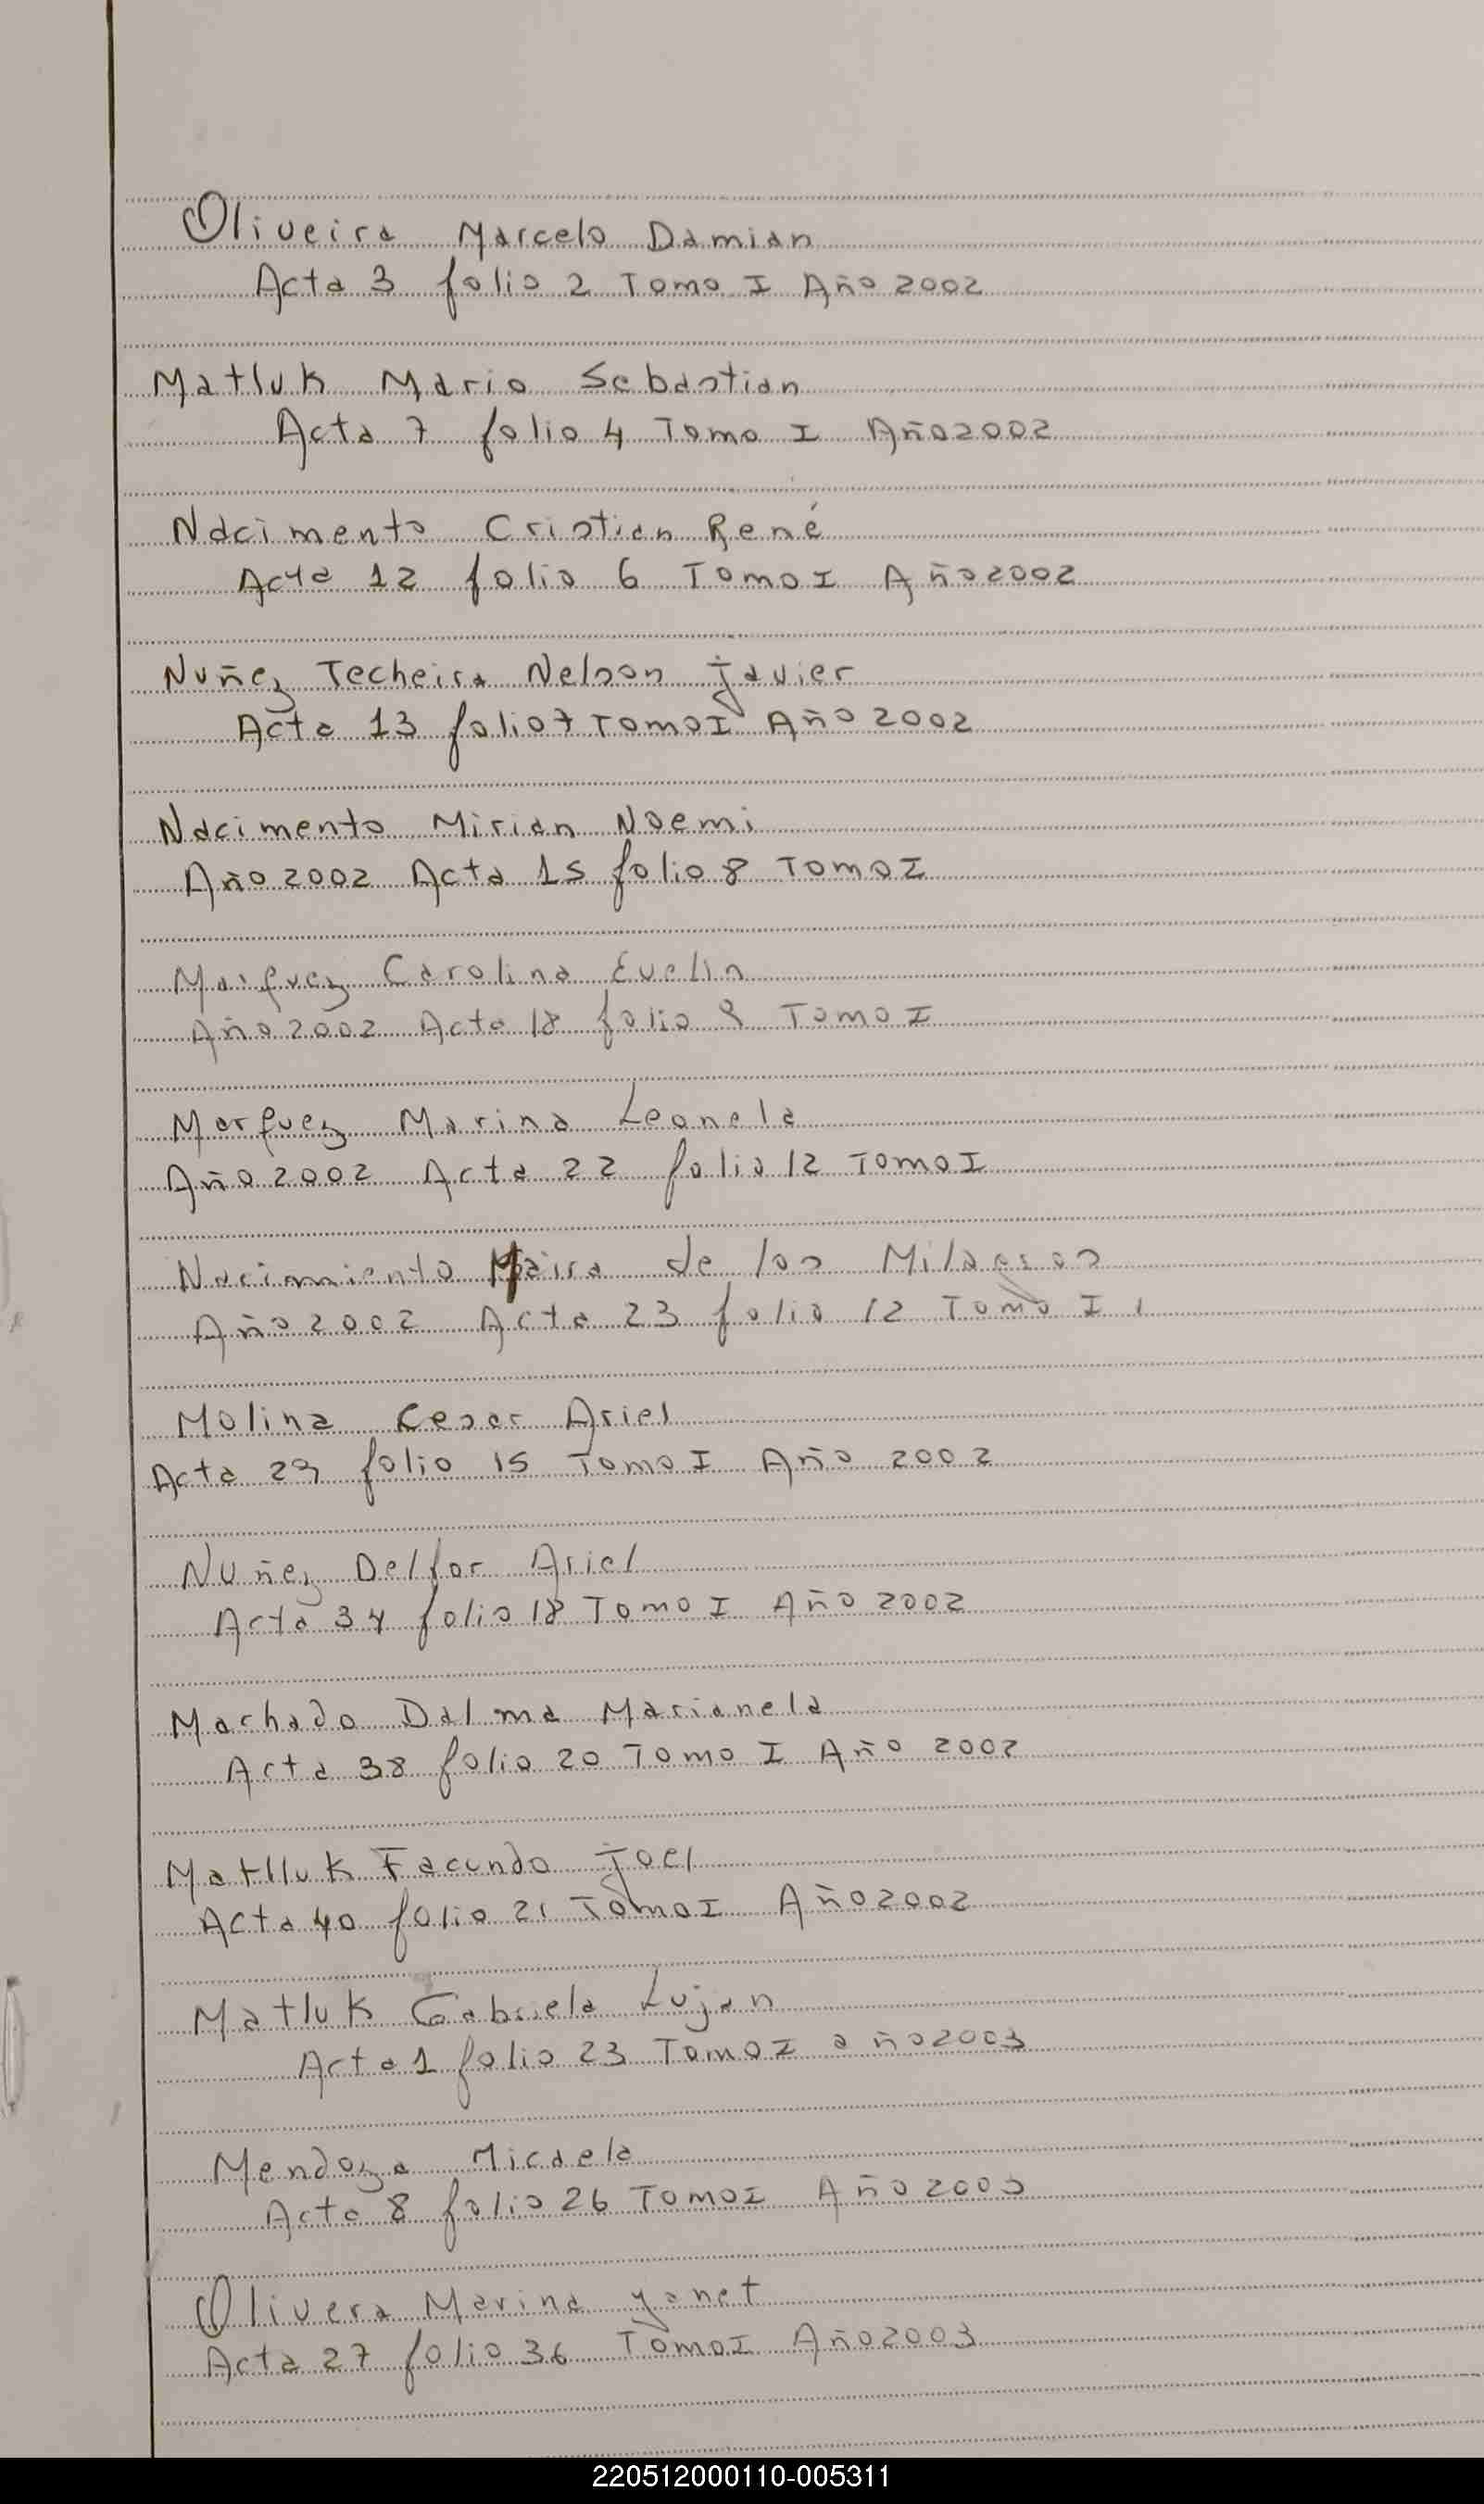 Oliveira Marcelo Damian
Acta 3 folio 2 Tomo I Año 2002
Matluk Mario Sebastian
Acta 7 folio 4 Tomo I Año 2002
Nacimento Cristian René
Acta 12 folio 6 Tomo I Año 2002
Nuñez Techeira Nelson Javier
Acta 13 folio 7 Tomo I Año 2002
Nacimento Mirian Noemi
Año 2002 Acta 15 folio 8 Tomo I
Marquez Carolina Evelin
Año 2002 Acta 18 folio 9 Tomo I
Marquez Marina Leonela
Año 2002 Acta 22 folio 12 Tomo I
Nacimiento Maira de los Milagros
Año 2002 Acta 23 folio 12 Tomo I
Molina Cesar Ariel
Acta 29 folio 15 Tomo I Año 2002
Nuñez Delfor Ariel
Acta 34 folio 18 Tomo I Año 2002
Machado Dalma Marianela
Acta 38 folio 20 Tomo I Año 2002
Matlluk Facundo Joel
Acta 40 folio 21 Tomo I Año 2002
Matluk Gabriela Lujan
Acta 1 folio 23 Tomo I año 2003
Mendoza Micaela
Acta 8 folio 26 Tomo I Año 2003
Olivera Marina yanet
Acta 27 folio 36 Tomo I Año 2003
220512000110-005311